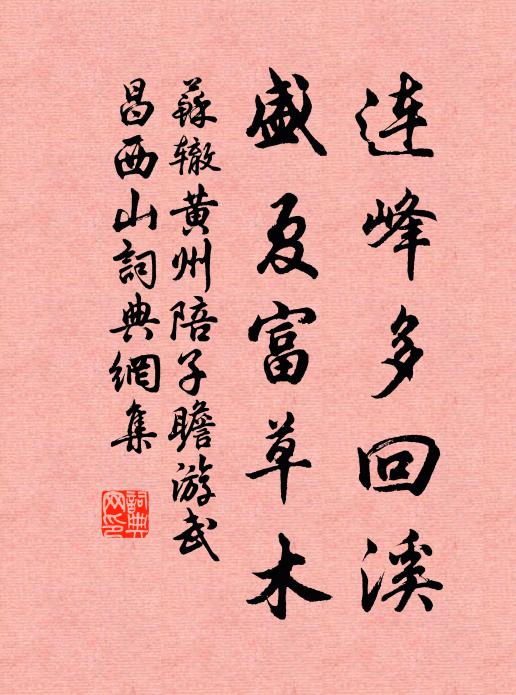 连峰多回溪
盛夏富草木
蘇辙黄州陪子瞻游武
昌西山詞典網集
詞典網印